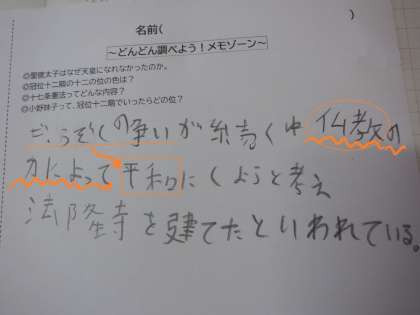 名前(　　　)
～どんどん調べよう！メモゾーン～
◎聖徳太子はなぜ天皇になれなかったのか。
◎冠位十二階の十二の位の色は？
◎十七条憲法ってどんな内容？
◎小野妹子って、冠位十二階でいったらどの位？
ごうぞくの争いが続く中 仏教の
力によって平和にくようと考え
法隆寺を建てたといわれている。